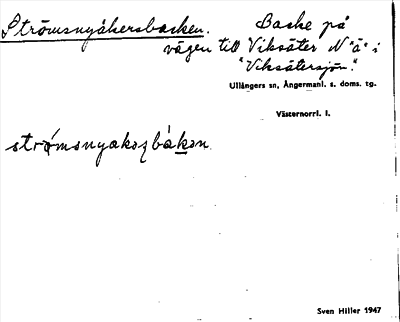 Strömsnyåkersbacken. Backe på
vägen till Viksäter N "ä" i
"Viksätersjön".
Ullångers sn, Ångermanl. s. doms. tg.
Västernorrl. l.
strömsnyakəʂbákən
Sven Hiller 1947